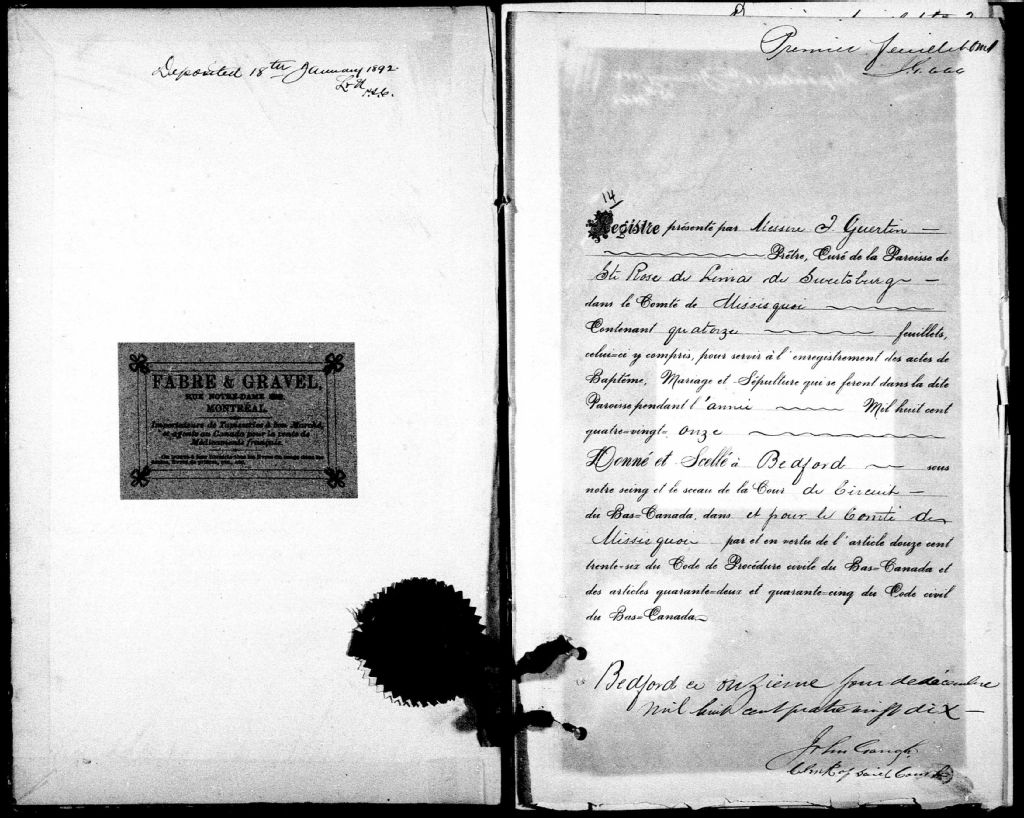 Deposited 18th January 1892
FABRE & GRAVEL,
RUE NOTRE-DAME
MONTRÉAL.
Importateurs de Tapisseries à bon Marché,
et agents au Canada pour la vente de
Médicaments français.
Premier feuillet
14
Registre présenté par Messire J Guertin —
Prêtre, Curé de la Paroisse de
Ste Rose de Lima de Sweetsburg —
dans le Comté de Missisquoi
Contenant quatorze feuillets,
celui=ci y compris, pour servir à l'enregistrement des actes de
Baptême, Mariage et Sépulture qui se feront dans la dite
Paroisse pendant l'année Mil huit cent
quatre=vingt= onze
Donné et Scellé à Bedford — sous
notre seing et le sceau de la Cour de Circuit —
du Bas=Canada, dans et pour le Comté de
Missisquoi par et en vertu de l'article douze cent
trente-six du Code de Procédure civile du Bas=Canada et
des articles quarante=deux et quarante=cinq du Code civil
du Bas=Canada.
Bedford ce onzieme jour de décembre
mil huit cent quatre vingt dix —
John Gough
Clerk of said Court